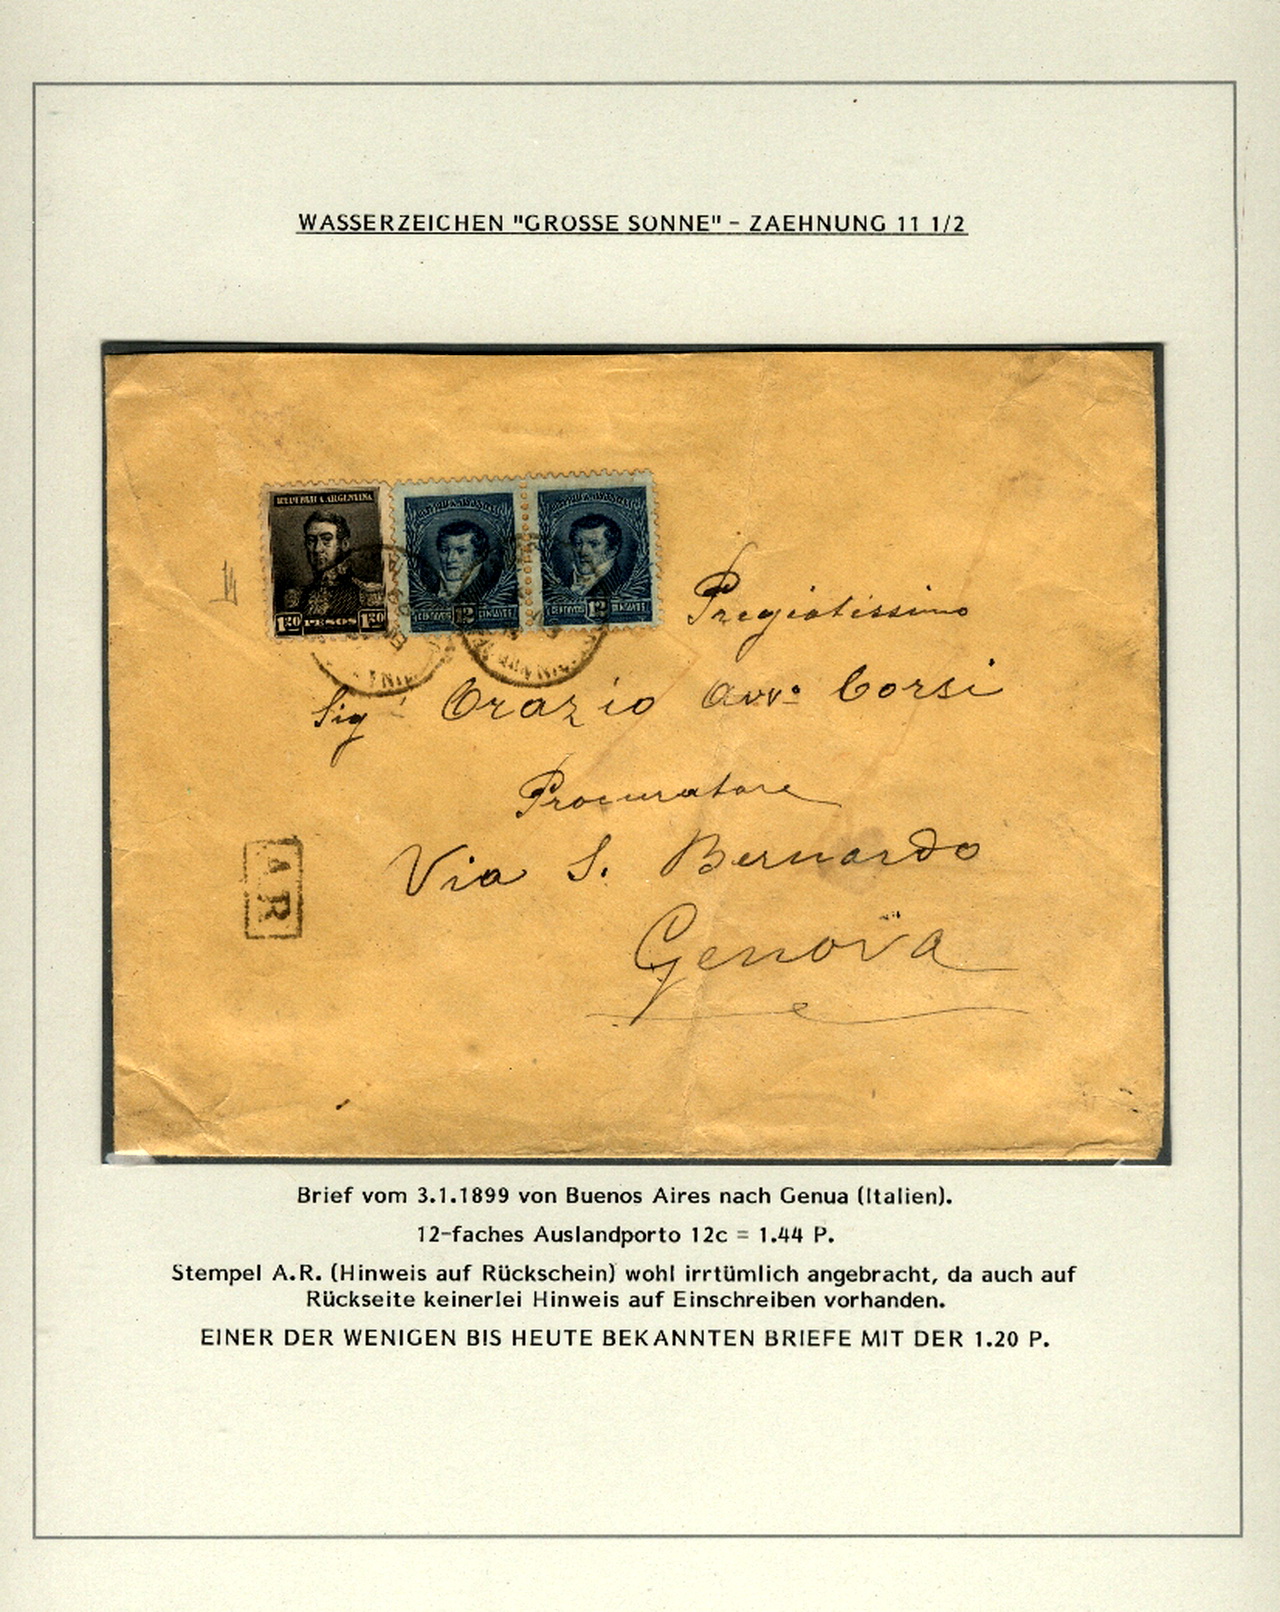 WASSERZEICHEN "GROSSE SONNE" - ZAEHNUNG 11 1/2
REPUBLICA ARGENTINA
1.20 PESOS 1.20
CENTAVOS 12 CENTAVOS
CENTAVOS 12 CENTAVOS
Pregiatissimo
Sig Orazio Avv° Corsi
Procuratore
Via S. Bernardo
Genova
AR
Brief vom 3.1.1899 von Buenos Aires nach Genua (Italien).
12-faches Auslandporto 12c = 1.44 P.
Stempel A.R. (Hinweis auf Rückschein) wohl irrtümlich angebracht, da auch auf
Rückseite keinerlei Hinweis auf Einschreiben vorhanden.
EINER DER WENIGEN BIS HEUTE BEKANNTEN BRIEFE MIT DER 1.20 P.